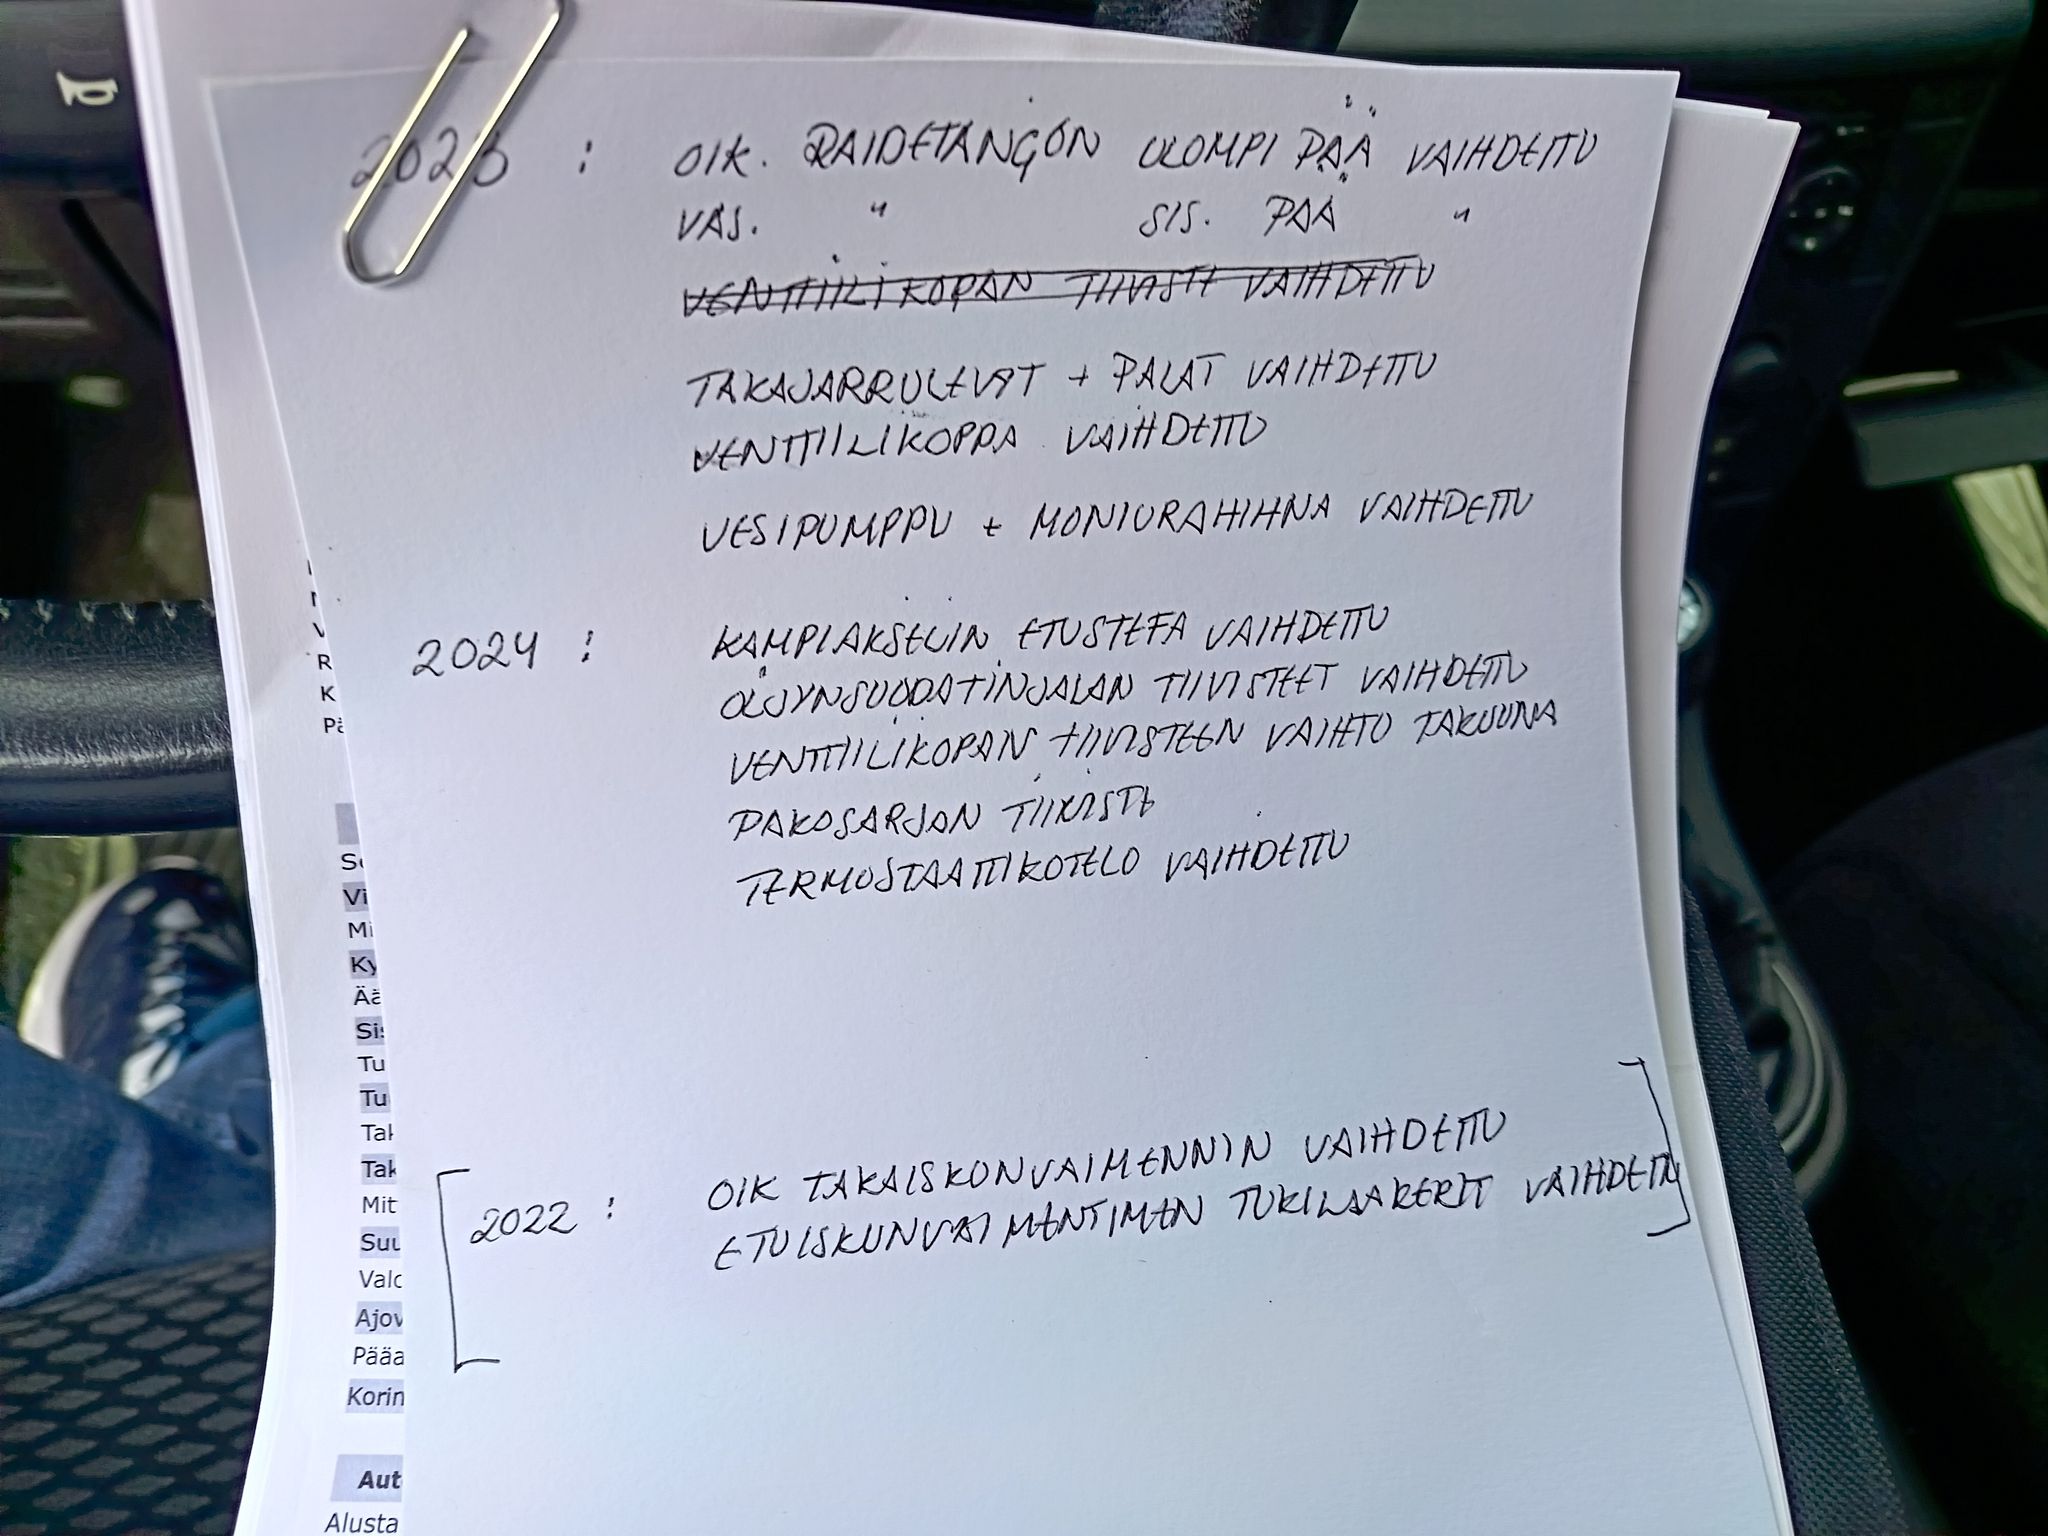 2023 : OIK. RAIDETANGON ULOMPI PÄÄ VAIHDETTU
VAS. " SIS. PÄÄ "
VENTTIILIKOPAN TIIVISTE VAIHDETTU
TAKAJARRULEVYT + PALAT VAIHDETTU
VENTTIILIKOPPA VAIHDETTU
VESIPUMPPU + MONIURAHIHNA VAIHDETTU
2024 : KAMPIAKSELIN ETUSTEFA VAIHDETTU
ÖLJYNSUODATINJALAN TIIVISTEET VAIHDETTU
VENTTIILIKOPAN TIIVISTEEN VAIHTO TAKUUNA
PAKOSARJAN TIIVISTE
TERMOSTAATTIKOTELO VAIHDETTU
2022 : OIK TAKAISKONVAIMENNIN VAIHDETTU
ETUISKUNVAIMENTIMEN TUKILAAKERIT VAIHDETTU
V
R
K
Pä
Se
Vi
Mi
Ky
Ää
Sis
Tu
Tu
Tak
Tak
Mit
Suu
Valo
Ajov
Pääa
Korin
Aut
Alusta